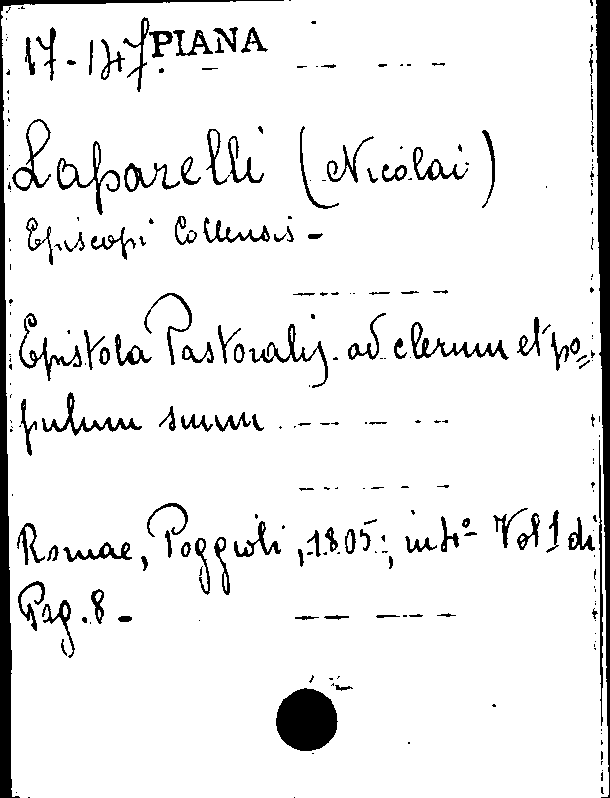 17-147 PIANA
Laparelli (Nicolai)
Episcopi Collensis -
Epistola Pastoralis ad clerum et po=
pulum suum
Romae, Poggioli, 1805; in 4º Vol 1 di
Pag. 8 -